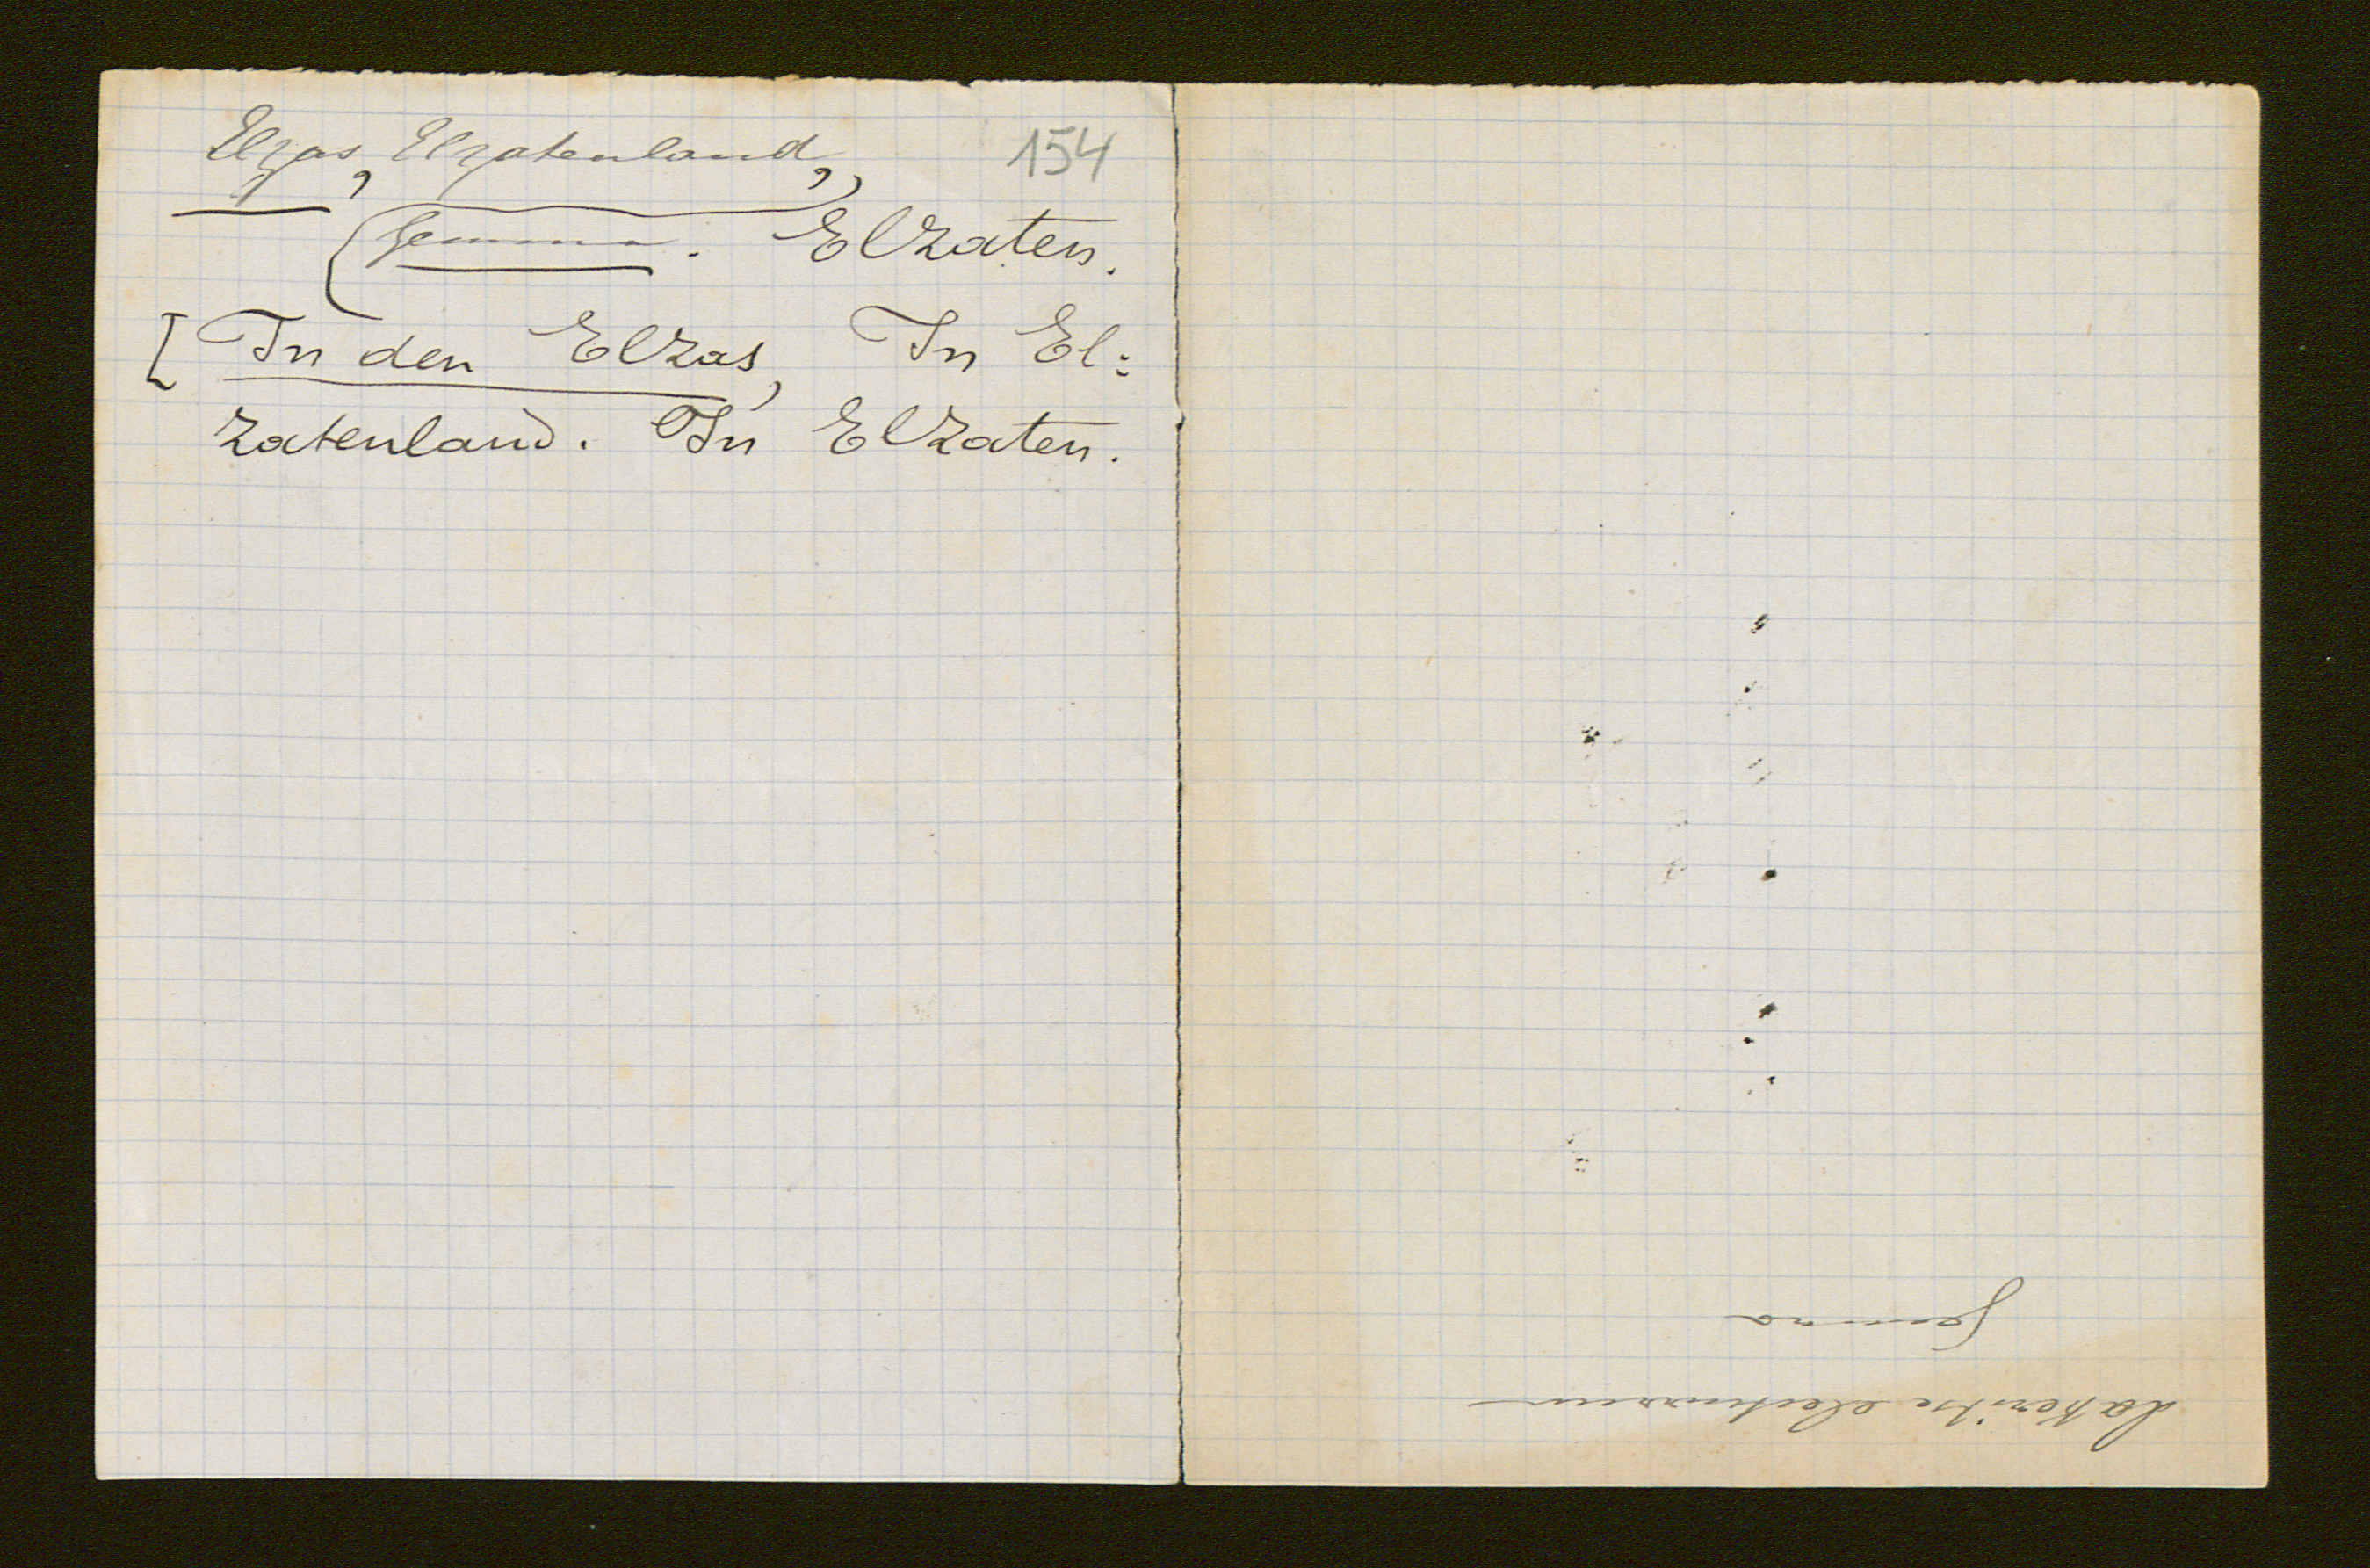 Elzas, Elzatenland, 154
(Gemma. Elzaten.
[In den Elzas, In El:
zatenland. In Elzaten.
Gemma